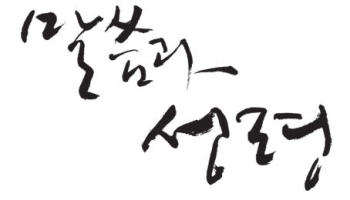 말씀과
성령